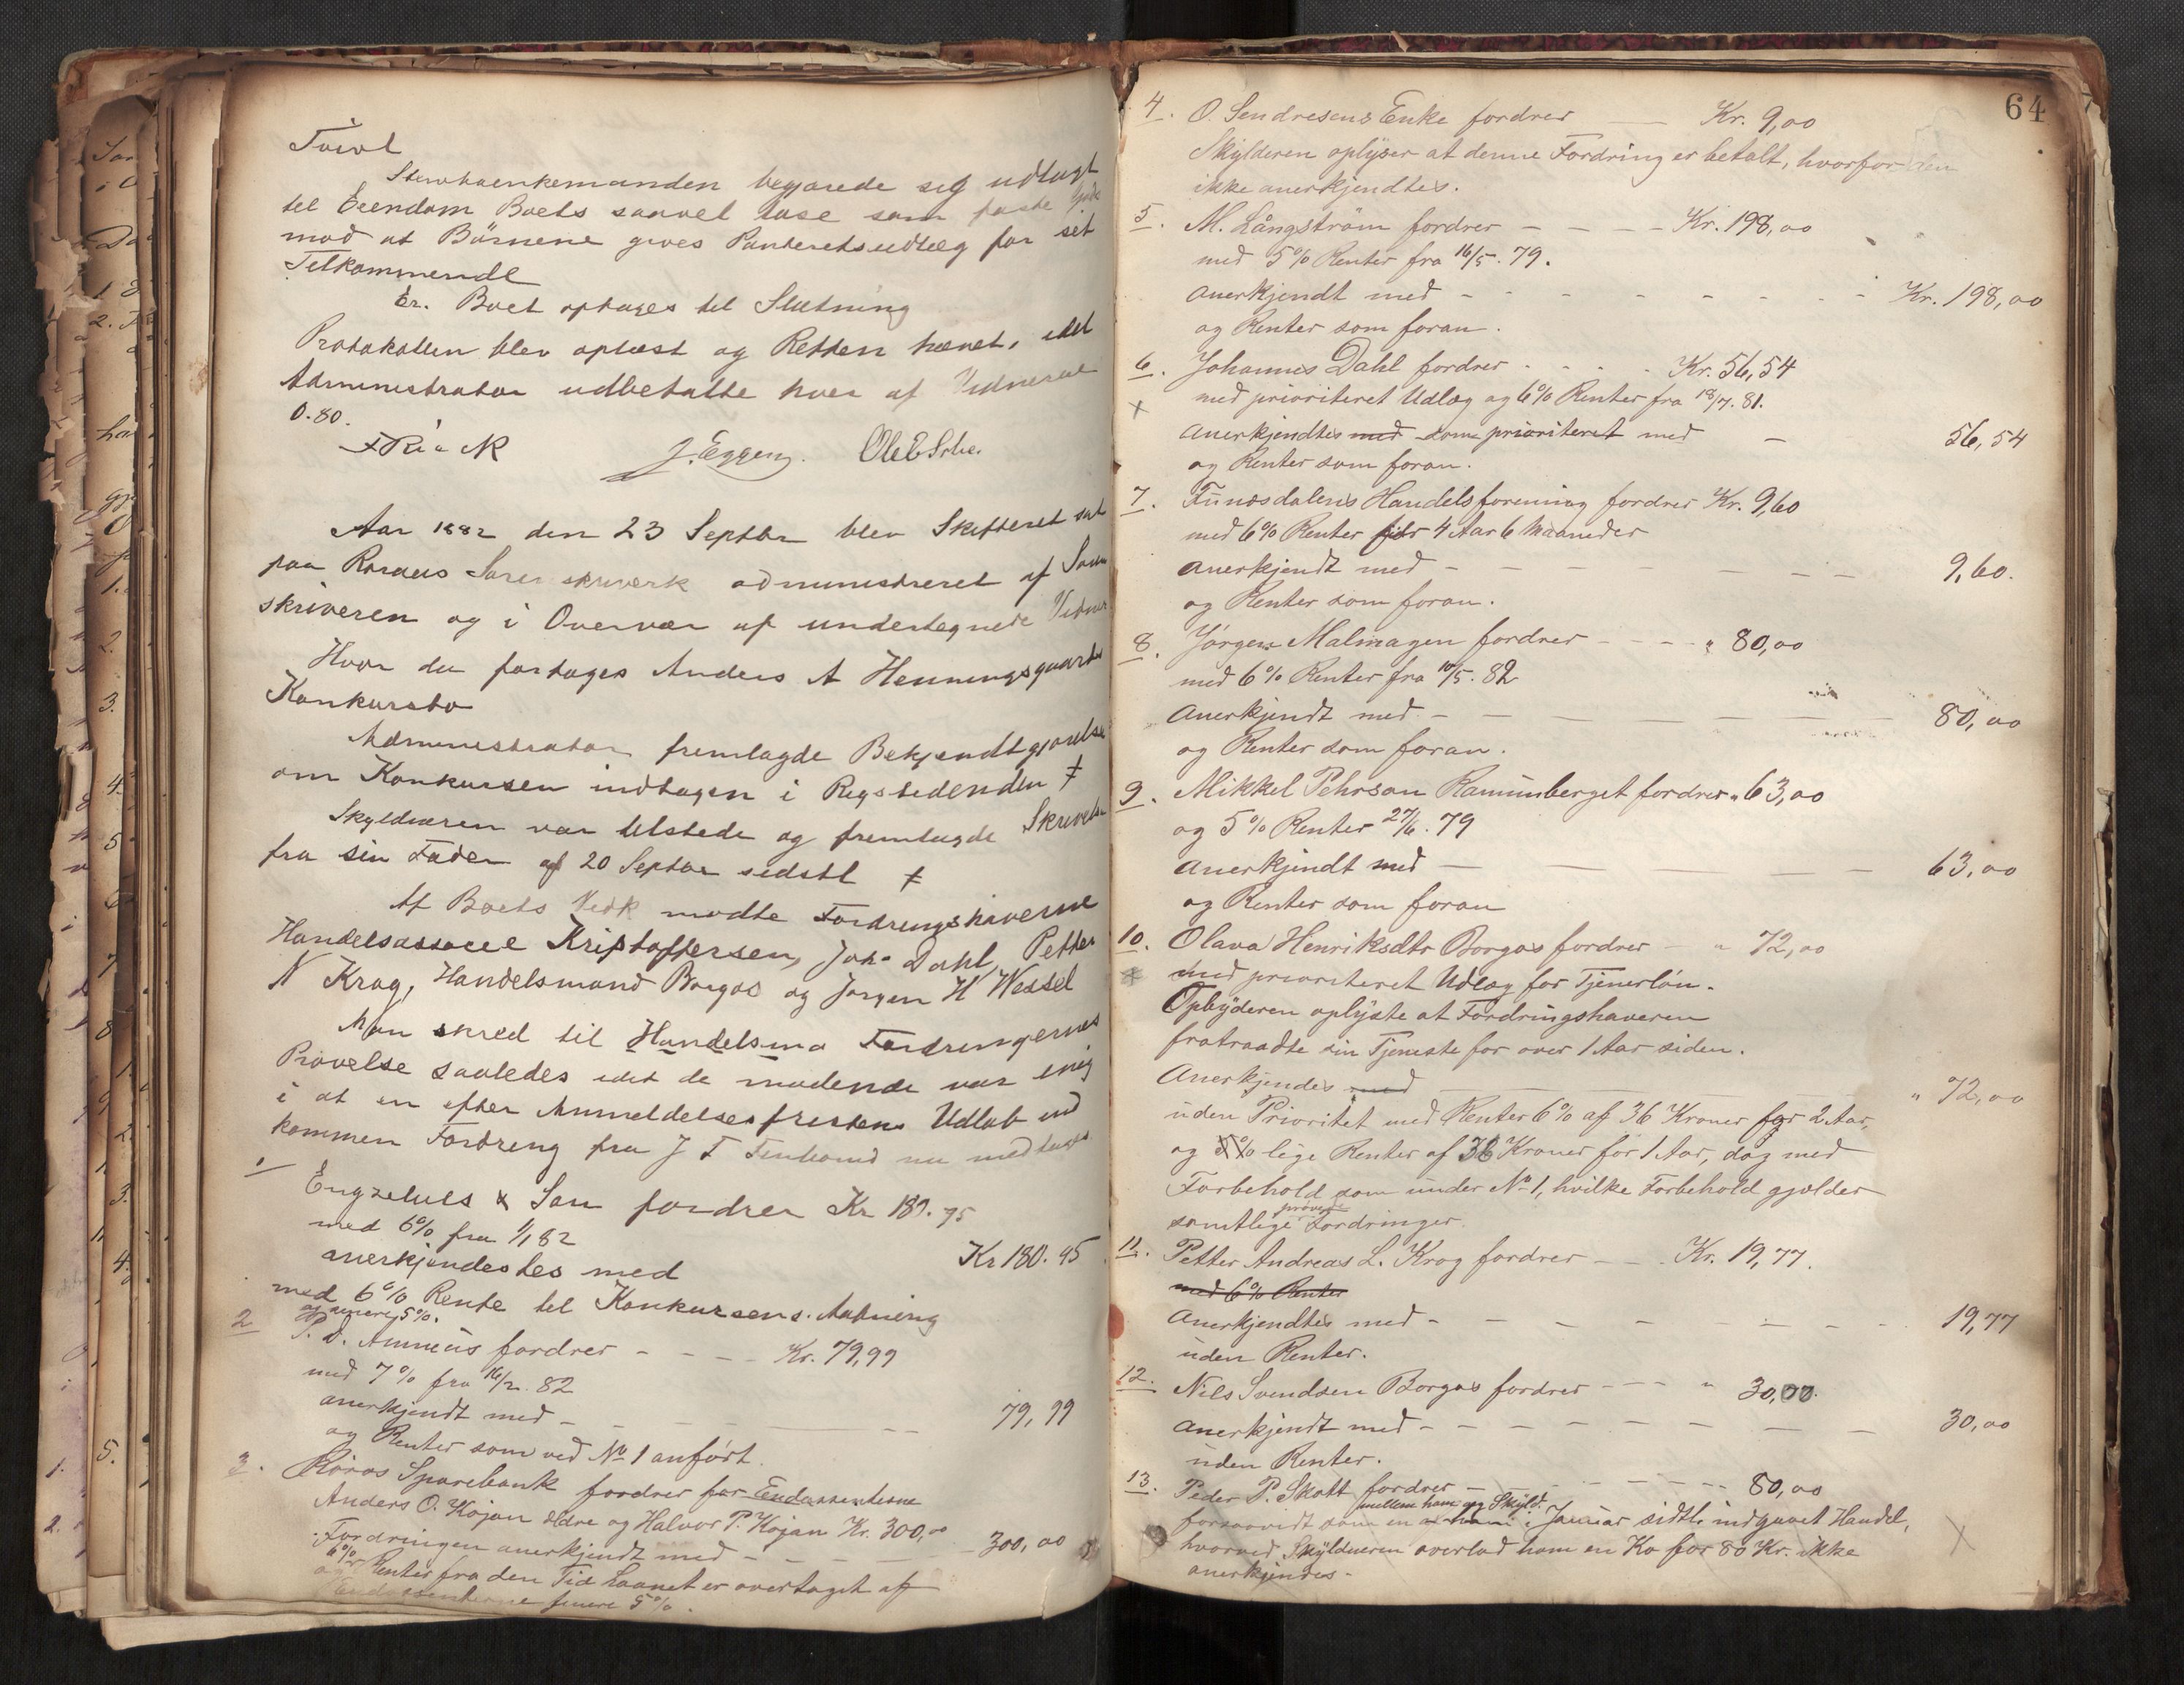 Tvivl
Sterboenkemanden begjærede sig udlagt
til Eiendom Boets saavel løse som faste Gods
mod at Börnene gives Panteretsudlæg for sit
Tilkommende
Er. Boet optages til Slutning
Protokollen blev oplæst og Retten hævet, idet
Administrator udbetalte hver af Vidnerne
0.80.
J. Eggen. Ole E
Aar 1882 den 23 Septbr blev Skifteret sat
paa Röraas Sorenskriverk administreret af Soren
skriveren og i Overvær af undertegnede Vidner
Hvor da foretages Anders A Henningsgaards
Konkursbo
Administrator fremlagde Bekjendtgjørelse
om Konkursen indtagen i Rigstidenden ≠
Skyldneren var tilstede og fremlagde Skrivelse
fra sin Fader af 20 Septbr sidstl ≠
Af Boets Vedk mødte Fordringshaverne
Handelsassocie Kristoffersen, Joh. Dahl, Petter
N Krag, Handelsmand Borgos og Jørgen H Wessel
Man skred til Handelsma Fordringernes
Prøvelse saaledes idet de mødende var enig
i at en efter Anmeldelsesfristens Udløb ind
kommen Fordring fra J T Finlund nu medtages
1
Engzelius & Søn fordrer Kr 180.95
med 6% fra 1/1 82
anerkjendestes med Kr 180.95
med 6% Rente til Konkursens Aabning
og senere 5%.
2 P. D. Amneus fordrer - - - - Kr. 79,99
med 7% fra 16/2. 82
anerkjendt med - - - - - - 79,99
og Renter som ved No 1 anfört.
3. Röros Sparebank fordrer for Endossenterne
Anders O. Kojan ældre og Halvor P. Kojan Kr. 300,00
Fordringen anerkjendt med - - - 300,00
og 6% Renter fra den Tid Laanet er overtaget af
Endossenterne senere 5%.
64
4. O. Sendresens Enke fordrer — Kr. 9,00
Skylderen oplyser at denne Fordring er betalt, hvorfor den
ikke anerkjendtes.
5. M. Långström fordrer - - - - Kr. 198,00
med 5% Renter fra 16/5. 79.
anerkjendt med - - - - - - - - - Kr. 198,00
og Renter som foran.
6. Johannes Dahl fordrer - - - - Kr. 56,54
x med prioriteret Udlæg og 6% Renter fra 18/7. 81.
anerkjendtes med som prioriteret med — 56,54
og Renter som foran.
7. Funæsdalens Handelsforening fordrer Kr. 9,60
med 6% Renter for 4 Aar 6 Maaneder
anerkjendt med - - - - - - - - 9,60.
og Renter som foran.
8. Jörgen Malmagen fordrer - - - - " 80,00
med 6% Renter fra 10/5. 82
anerkjendt med - - - - - - 80,00
og Renter som foran.
9. Mikkel Pehrson Ramunberget fordrer " 63,00
og 5% Renter 27/6. 79
anerkjendt med - - - - - 63,00
og Renter som foran
10. Olava Henriksdtr Borgos fordrer — " 72,00
x med prioriteret Udlæg for Tjenerlön.
Opbyderen oplyste at Fordringshaveren
fratraadte sin Tjeneste for over 1 Aar siden.
Anerkjendes med — " 72,00
uden Prioritet med Renter 6% af 36 Kroner for 2 Aar,
og 5% lige Renter af 36 Kroner for 1 Aar, dog med
Forbehold som under No 1, hvilke Forbehold gjælder
samtlige prövede Fordringer.
11. Petter Andreas L. Krog fordrer - - - Kr. 19,77.
med 6% Renter
Anerkjendtes med - - - - - - - - 19,77
uden Renter.
12. Nils Svendsen Borgos fordrer - - - " 30,00.
anerkjendt med - - - - - - - - 30,00
uden Renter.
13. Peder P. Skott fordrer - - - - - - - 80,00
forsaavidt som en mellem ham og Skyld. i Januar sidtl. indgaaet Handel,
hvorved Skyldneren overlod ham en Ko for 80 Kr. ikke
anerkjendes.